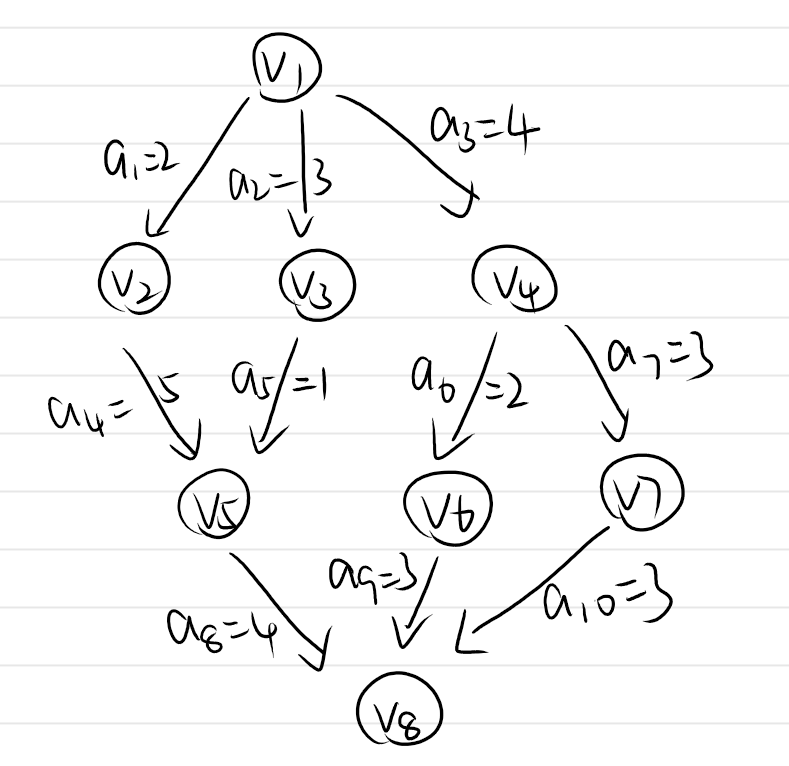 V1
a1=2
a2=3
a3=4
V2
V3
V4
a4=5
a5=1
a6=2
a7=3
V5
V6
V7
a8=4
a9=3
a10=3
V8